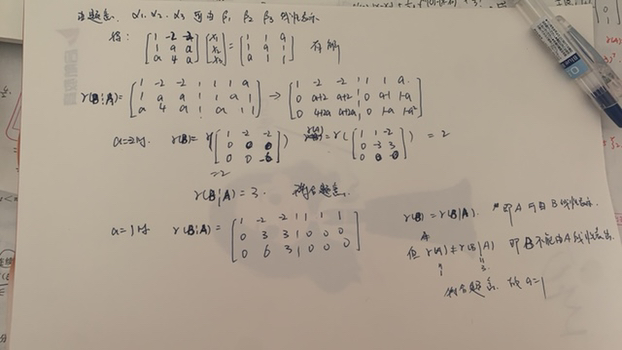 由题意. α₁, α₂, α₃ 可由 β₁, β₂, β₃ 线性表示
得: [1 -2 -2; 1 a a; a 4 a] [x₁; x₂; x₃] = [1 1 a; 1 a 1; a 1 1] 有解
r(B|A) = [1 -2 -2 | 1 1 a; 1 a a | 1 a 1; a 4 a | a 1 1] → [1 -2 -2 | 1 1 a; 0 a+2 a+2 | 0 a-1 1-a; 0 4+2a 3a | 0 1-a 1-a²]
a=-2时. r(B) = r([1 -2 -2; 0 0 0; 0 0 -6]) r(A) = r([1 1 -2; 0 -3 3; 0 0 0]) = 2
=2
r(B|A) = 3. 符合题意.
a=1时 r(B|A) = [1 -2 -2 | 1 1 1; 0 3 3 | 0 0 0; 0 6 3 | 0 0 0]
r(B) = r(B|A). 即A可由B线性表示.
但 r(A) ≠ r(B|A) 即B不能由A线性表示.
符合题意. 故a=1